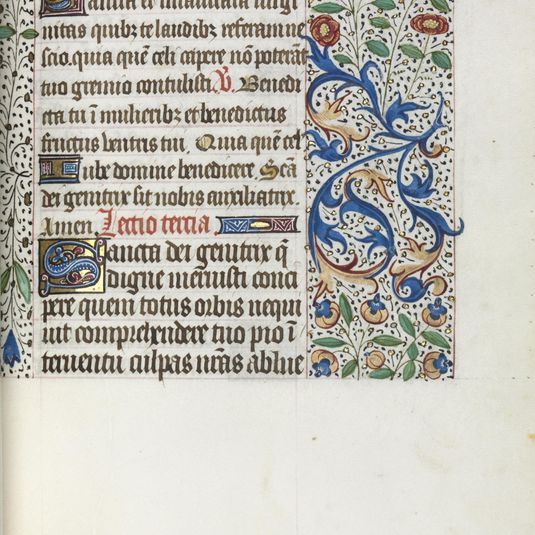 Sancta et inmaculata virgi
nitas quibz te laudibz referam ne
scio. quia quē celi capere nō poterāt
tuo gremio contulisti. V. Benedi
cta tu ī mulieribz et benedictus
fructus ventris tui. Quia quē celi
Iube domine benedicere. Scā
dei genitrix sit nobis auxiliatrix
Amen. Lectio tercia
Sancta dei genitrix q̄
digne meruisti conci
pere quem totus orbis nequi
uit comprehendere tuo pio ī
teruentu culpas nr̄as ablue